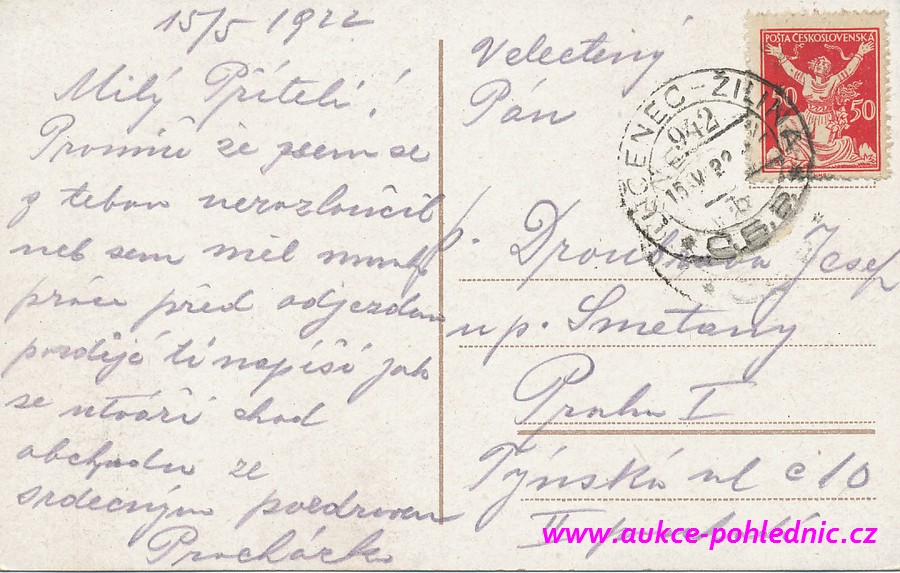 15/5 1922
Milý Příteli!
Promiň že jsem se
z tebou nerozloučil
neb sem měl mnoho
práce před odjezdem
pozdějí ti napíší jak
se utváří chod
obchodu ze
srdečným pozdravem
Procházka
Velectěný
Pán
p. Josef
u p. Smetany
Praha I
Týnská ul č 10
II
POŠTA ČESKOSLOVENSKÁ
50
LUČENEC-ŽILINA
942
15.V.22
Č.S.P.
www.aukce-pohlednic.cz